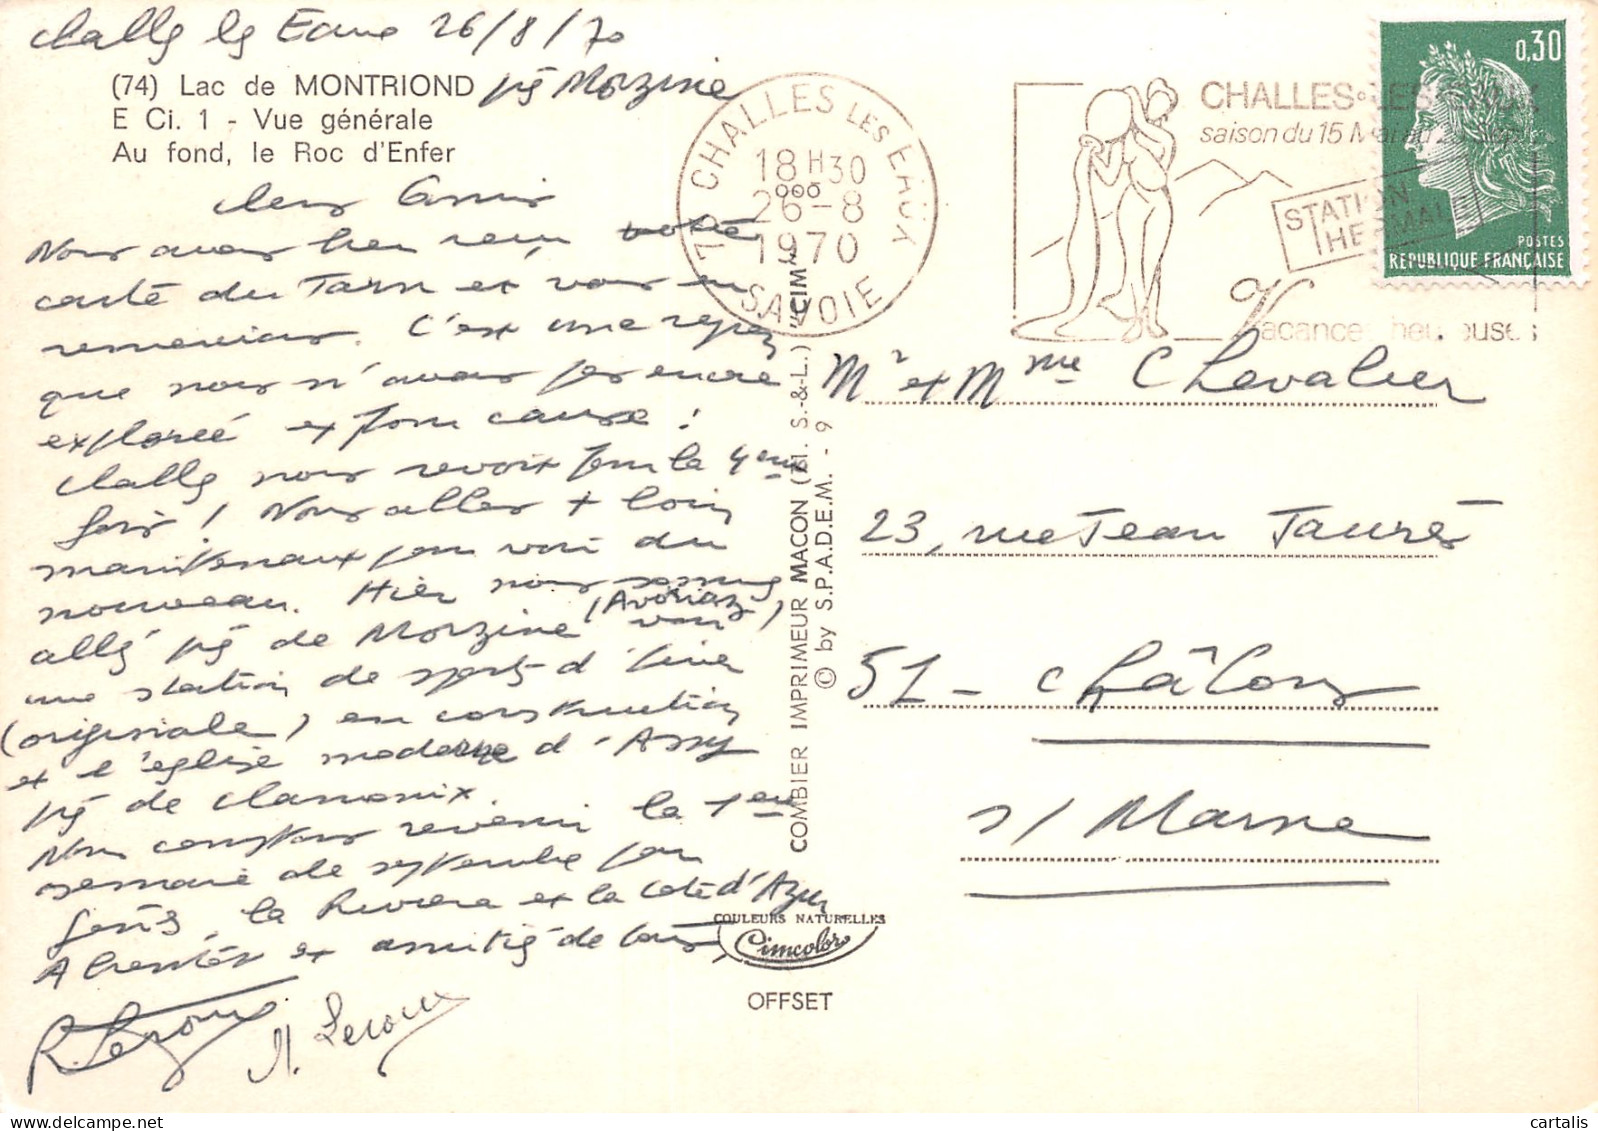 Challes les Eaux 26/8/70
(74) Lac de MONTRIOND près Morzine
E Ci. 1 - Vue générale
Au fond, le Roc d'Enfer
Chers Amis
Nous avons bien reçu votre
carte du Tarn et vous en
remercions. C'est une région
que nous n'avons pas encore
explorée et pour cause !
Challes nous revoit pour la 4ème
fois ! Nous allons + loin
maintenant pour voir du
nouveau. Hier nous sommes
allés près de Morzine (Avoriaz) voir
une station de sports d'hiver
(originale) en construction
et l'église moderne d'Assy
près de Chamonix.
Nous comptons revenir la 1ère
semaine de septembre par
Gênes, la Riviera et la Côte d'Azur
A bientôt et amitiés de tous,
R. Leroux
Leroux
73 CHALLES LES EAUX
18 H 30
26-8
1970
SAVOIE
CHALLES-LES-EAUX
saison du 15 Mai au 2 Sept
STATION
THERMALE
Vacances heureuses
0,30
POSTES
REPUBLIQUE FRANÇAISE
Mr et Mme Chevalier
23, rue Jean Jaurès
51 - Châlons
s/ Marne
COMBIER IMPRIMEUR MACON (71. S.-&-L.) "CIM"
© by S.P.A.D.E.M. - 9
COULEURS NATURELLES
Cimcolor
OFFSET
cartalis.com